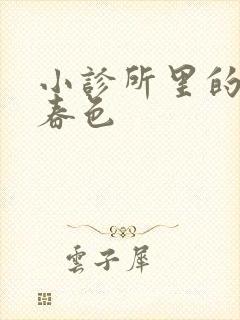 小診所里的
春色
雲子犀